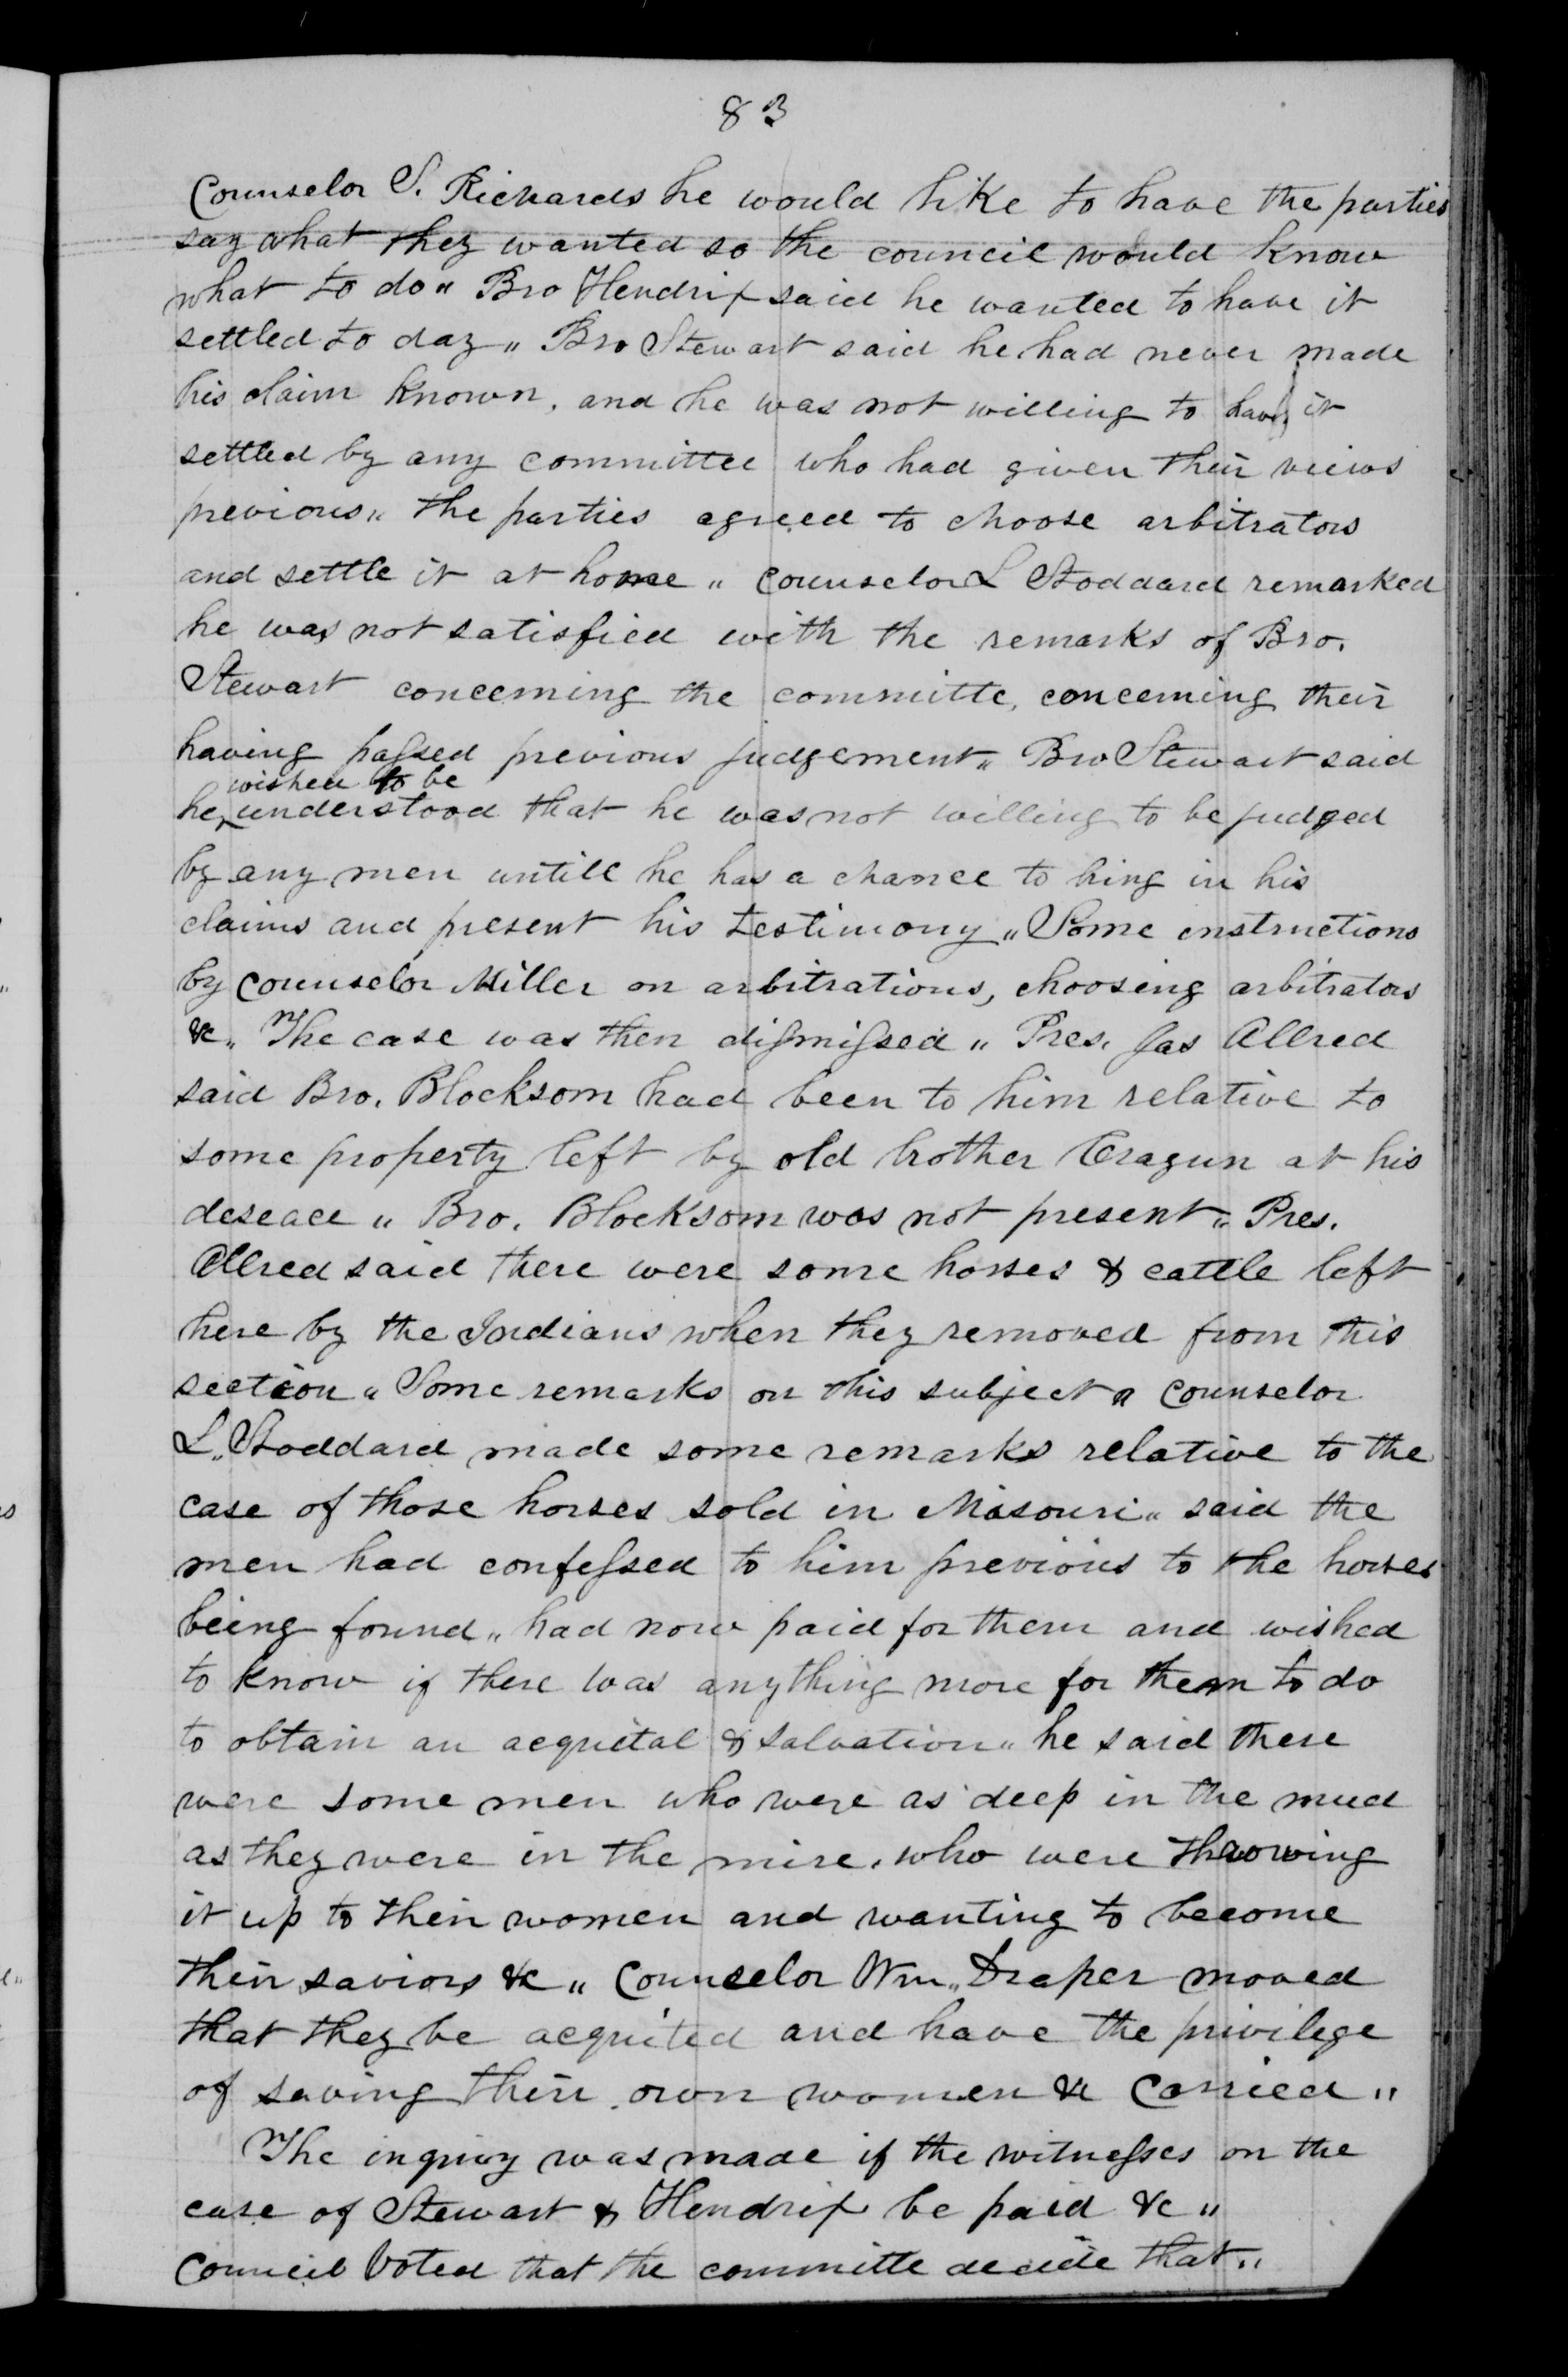 83
Counselor S. Richards he would like to have the parties
say what they wanted so the council would know
what to do „ Bro Hendrix said he wanted to have it
settled to day „ Bro Stewart said he had never made
his claim known, and he was not willing to have it
settled by any committee who had given their views
previous „ the parties agreed to choose arbitrators
and settle it at home „ Counselor L Stoddard remarked
he was not satisfied with the remarks of Bro.
Stewart concerning the committe, concerning their
having passed previous judgement „ Bro Stewart said
wished to be
he ‸ understood that he was not willing to be judged
by any men untill he has a chance to bring in his
claims and present his testimony „ Some instructions
by counselor Miller on arbitrations, choosing arbitrators
&c „ The case was then dismissed „ Pres. Jas Allred
said Bro. Blocksom had been to him relative to
some property left by old brother Cragun at his
deseace „ Bro. Blocksom was not present „ Pres.
Allred said there were some horses & cattle left
here by the Indians when they removed from this
section „ Some remarks on this subject „ Counselor
L. Stoddard made some remarks relative to the
case of those horses sold in Misouri „ said the
men had confessed to him previous to the horses
being found „ had now paid for them and wished
to know if there was anything more for them to do
to obtain an acquital & salvation „ he said there
were some men who were as deep in the mud
as they were in the mire, who were throwing
it up to their women and wanting to become
their saviors &c „ Counselor Wm „ Draper moved
that they be acquited and have the privilege
of saving their own women &c Carried „
The inquiry was made if the witnesses on the
case of Stewart & Hendrix be paid &c „
Council Voted that the committe decide that „